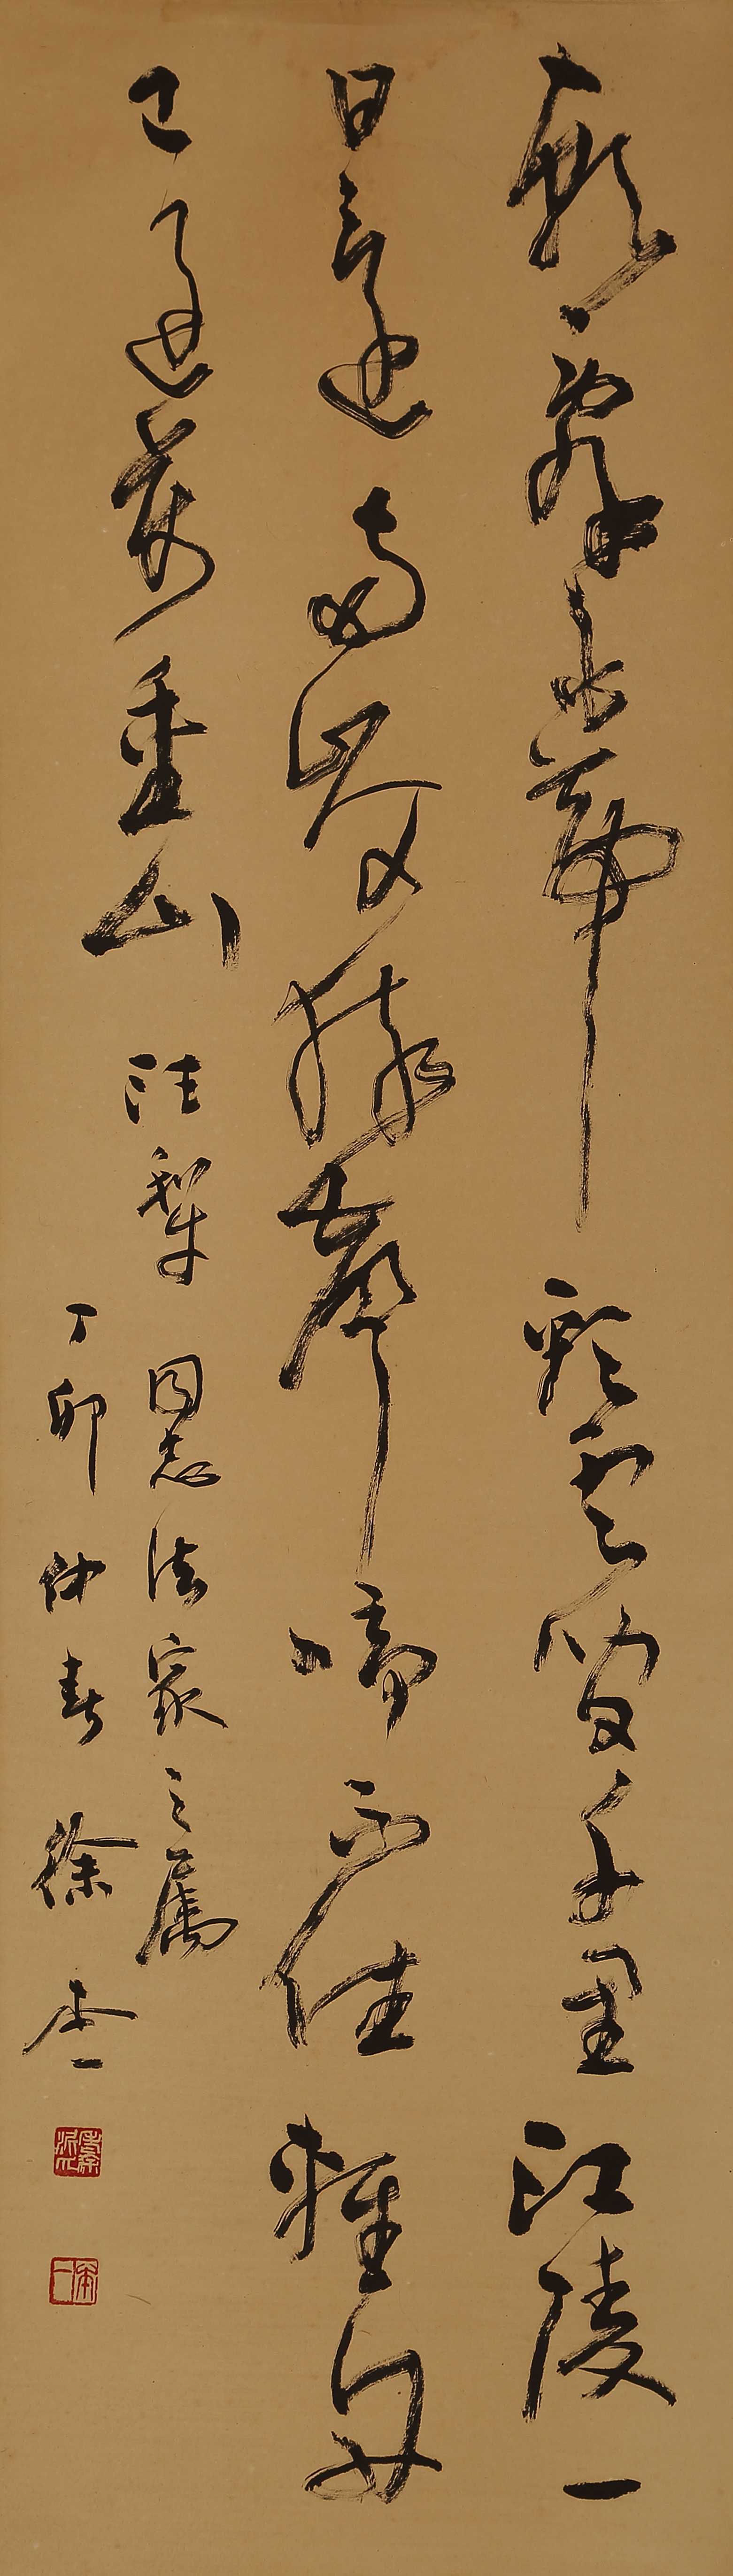 朝辭白帝彩雲間千里江陵一
日還兩岸猿聲啼不住輕舟
已過萬重山 汪犁同志法家之屬
丁卯仲春徐本一